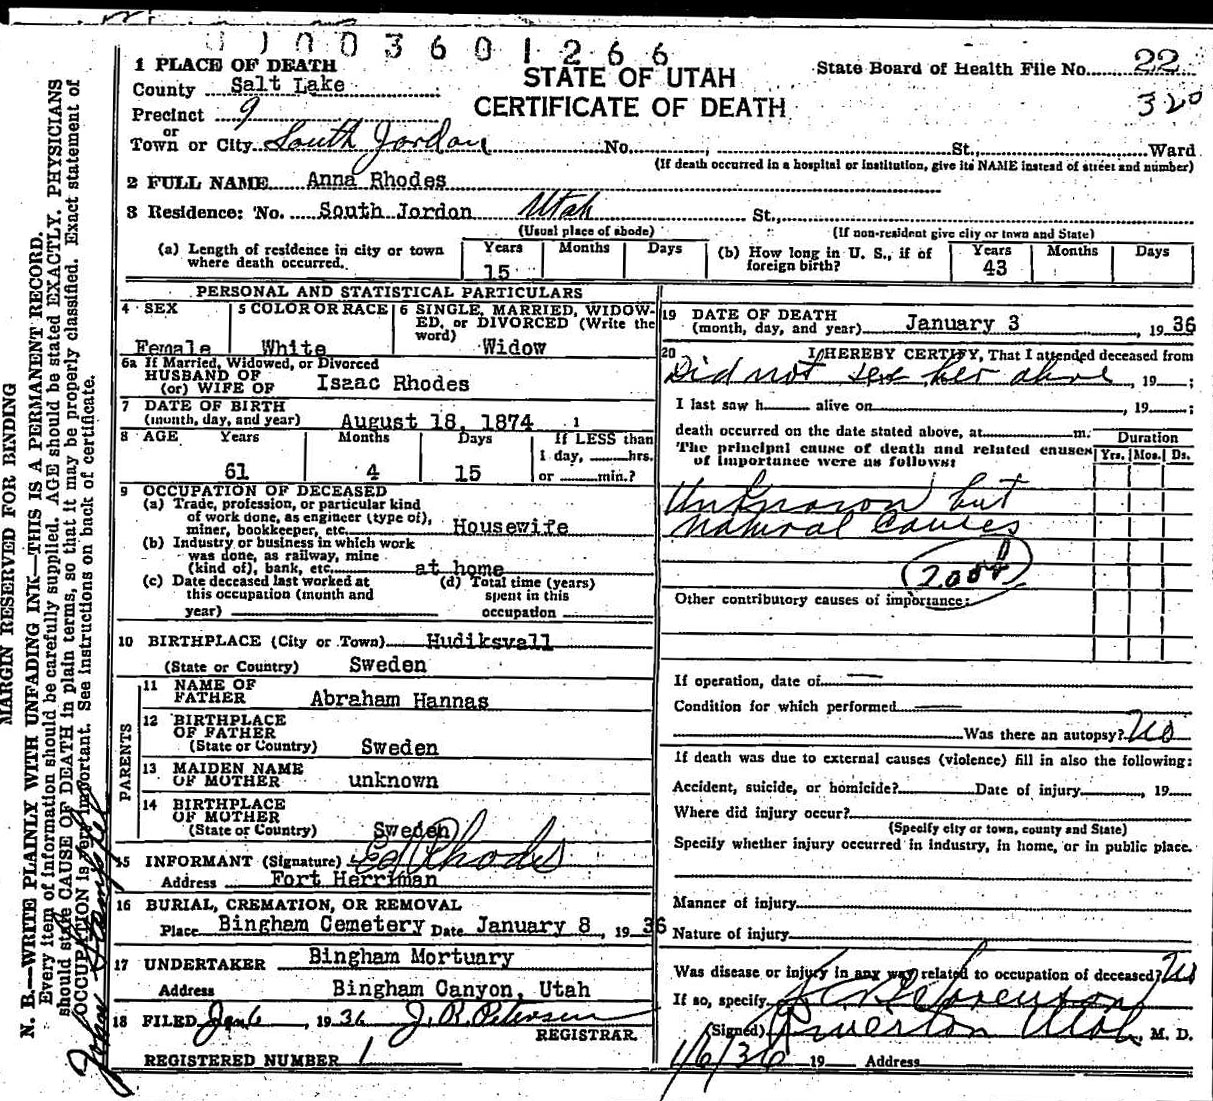 0 1 0 0 3 6 0 1 2 6 6
1 PLACE OF DEATH
County Salt Lake
Precinct 9
or
Town or City South Jordan No. , St., Ward
(If death occurred in a hospital or institution, give its NAME instead of street and number)
STATE OF UTAH
CERTIFICATE OF DEATH
State Board of Health File No. 22
320
2 FULL NAME Anna Rhodes
3 Residence: No. South Jordon Utah St.,
(Usual place of abode) (If non-resident give city or town and State)
(a) Length of residence in city or town where death occurred. Years 15 Months Days
(b) How long in U. S., if of foreign birth? Years 43 Months Days
PERSONAL AND STATISTICAL PARTICULARS
4 SEX Female
5 COLOR OR RACE White
6 SINGLE, MARRIED, WIDOWED, or DIVORCED (Write the word) Widow
6a If Married, Widowed, or Divorced
HUSBAND OF
(or) WIFE OF Isaac Rhodes
7 DATE OF BIRTH
(month, day, and year) August 18, 1874
8 AGE Years 61 Months 4 Days 15 If LESS than 1 day, hrs. or min.?
9 OCCUPATION OF DECEASED
(a) Trade, profession, or particular kind
of work done, as engineer (type of),
miner, bookkeeper, etc. Housewife
(b) Industry or business in which work
was done, as railway, mine
(kind of), bank, etc. at home
(c) Date deceased last worked at
this occupation (month and
year)
(d) Total time (years)
spent in this
occupation
10 BIRTHPLACE (City or Town) Hudiksvall
(State or Country) Sweden
PARENTS
11 NAME OF
FATHER Abraham Hannas
12 BIRTHPLACE
OF FATHER
(State or Country) Sweden
13 MAIDEN NAME
OF MOTHER unknown
14 BIRTHPLACE
OF MOTHER
(State or Country) Sweden
15 INFORMANT (Signature) Ed Rhodes
Address Fort Herriman
16 BURIAL, CREMATION, OR REMOVAL
Place Bingham Cemetery Date January 8, 1936
17 UNDERTAKER Bingham Mortuary
Address Bingham Canyon, Utah
18 FILED Jan 6, 1936 J. R. Petersen
REGISTRAR.
REGISTERED NUMBER 1
19 DATE OF DEATH
(month, day, and year) January 3, 1936
20 I HEREBY CERTIFY, That I attended deceased from
Did not see her alive, 19 ;
I last saw h alive on , 19 ;
death occurred on the date stated above, at m.
The principal cause of death and related causes
of importance were as follows:
Duration
Yrs. Mos. Ds.
Unknown but
natural causes
Other contributory causes of importance:
If operation, date of
Condition for which performed
Was there an autopsy? No
If death was due to external causes (violence) fill in also the following:
Accident, suicide, or homicide? Date of injury , 19
Where did injury occur?
(Specify city or town, county and State)
Specify whether injury occurred in industry, in home, or in public place.
Manner of injury
Nature of injury
Was disease or injury in any way related to occupation of deceased? No
If so, specify
(Signed) Sorenson, M. D.
Riverton Utah
1/6/36 19 Address
MARGIN RESERVED FOR BINDING
N. B.—WRITE PLAINLY WITH UNFADING INK—THIS IS A PERMANENT RECORD.
Every item of information should be carefully supplied. AGE should be stated EXACTLY. PHYSICIANS
should state CAUSE OF DEATH in plain terms, so that it may be properly classified. Exact statement of
OCCUPATION is very important. See instructions on back of certificate.